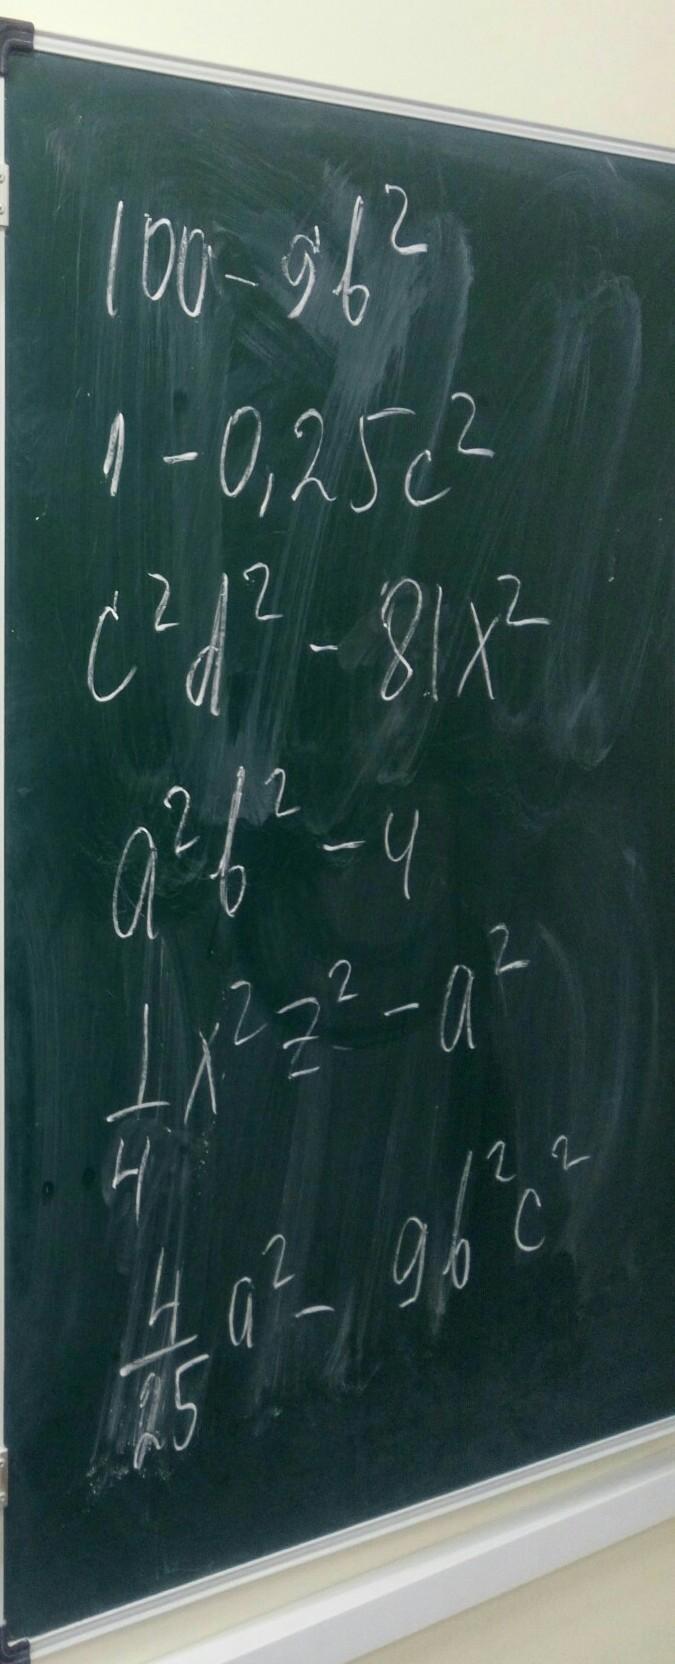 100 - 9b²
1 - 0,25c²
c²d² - 81x²
a²b² - 4
1/4 x²z² - a²
4/25 a² - 9b²c²